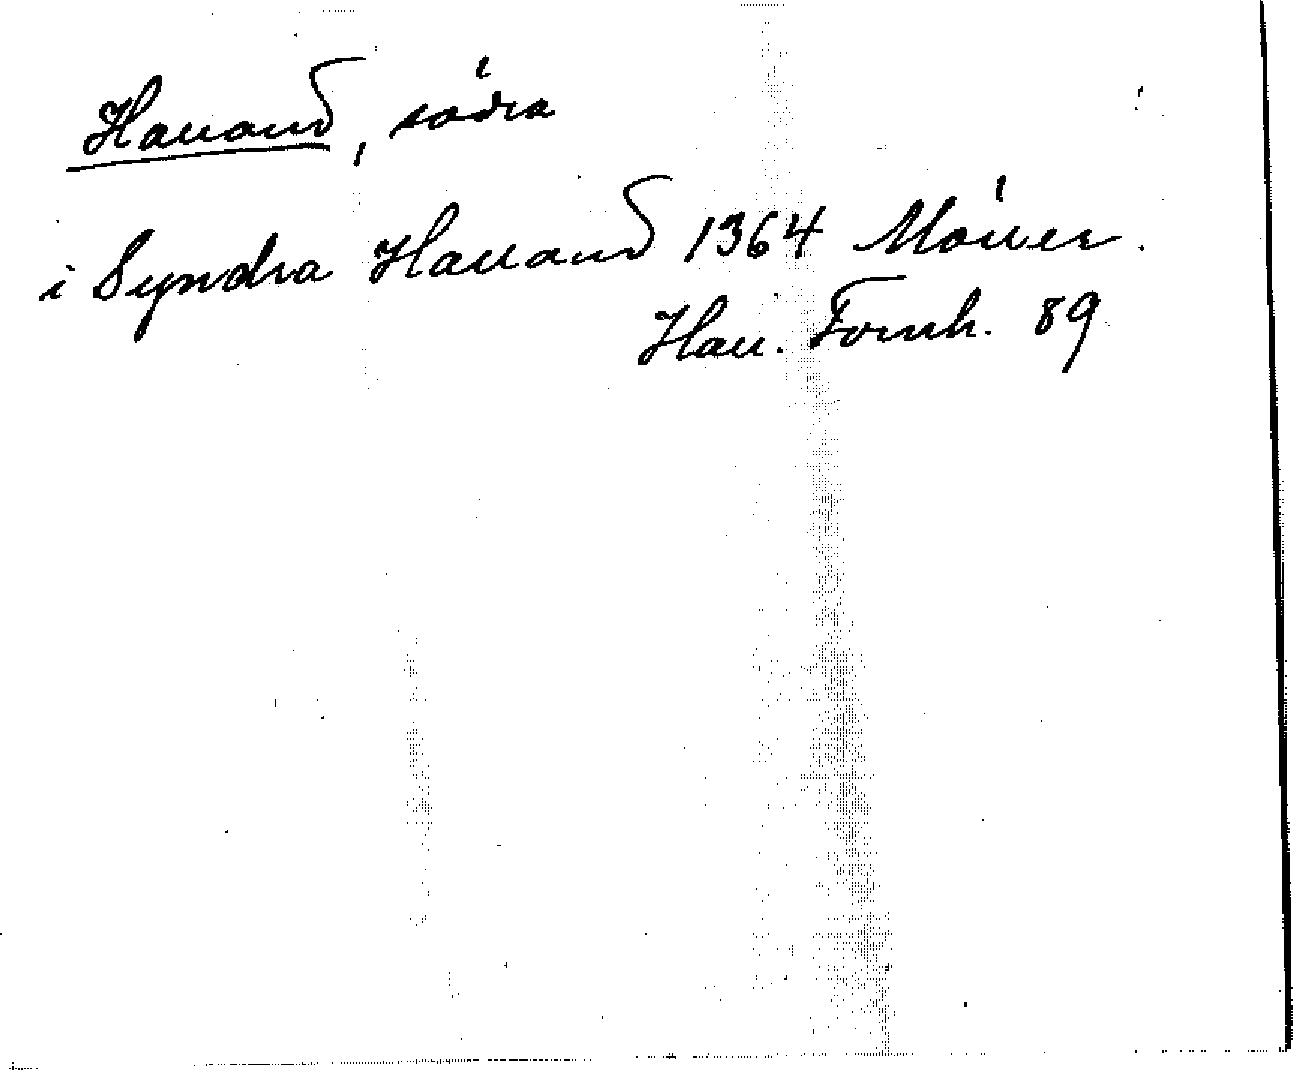 Halland, södra
i Syndra Halland 1364 Möller.
Hall. Fornh. 89